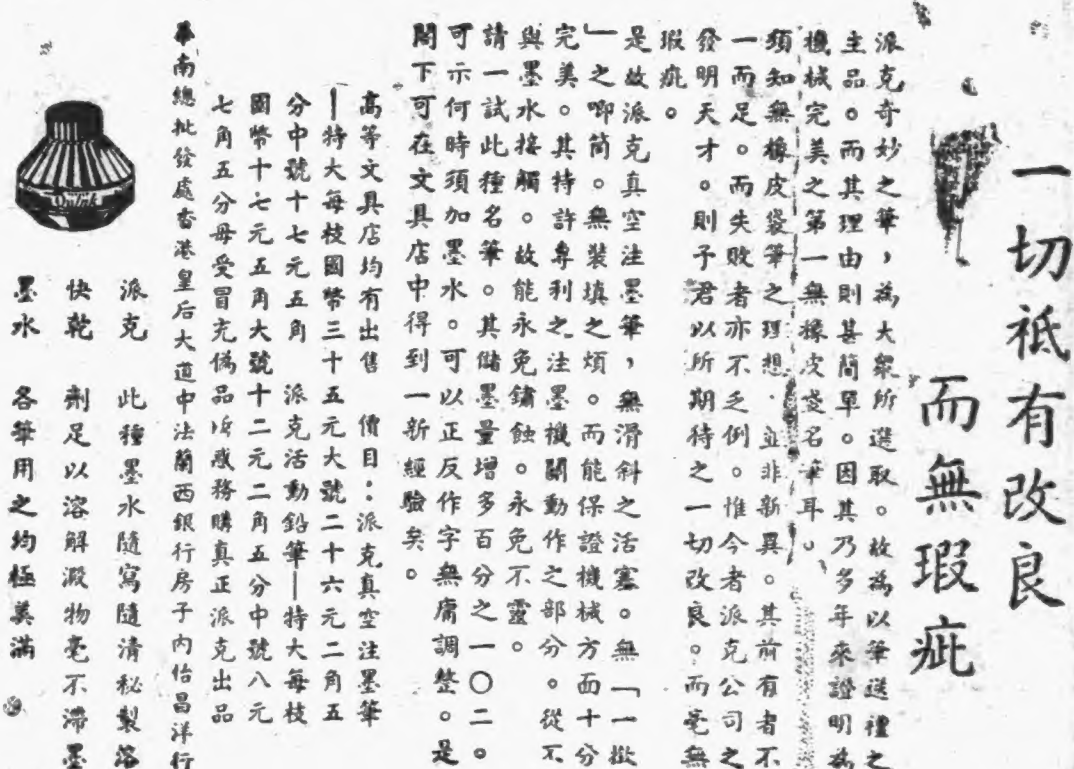 一切祗有改良
而無瑕疵
派克奇妙之筆，為大衆所選取。故為以筆送禮之
主品。而其理由則甚簡單。因其乃多年來證明為
機械完美之第一無橡皮袋名筆耳。
須知無橡皮袋筆之理想．並非新異。其前有者不
一而足。而失敗者亦不乏例。惟今者派克公司之
發明天才。則予君以所期待之一切改良。而毫無
瑕疵。
是故派克真空注墨筆，無滑斜之活塞。無「一撳
」之唧筒。無裝填之煩。而能保證機械方面十分
完美。其持許專利之注墨機關動作之部分。從不
與墨水接觸。故能永免鏽蝕。永免不靈。
請一試此種名筆。其儲墨量增多百分之一〇二。
可示何時須加墨水。可以正反作字無庸調整。是
閣下可在文具店中得到一新經驗矣。
高等文具店均有出售　價目：派克真空注墨筆
—特大每枝國幣三十五元大號二十六元二角五
分中號十七元五角　派克活動鉛筆—特大每枝
國幣十七元五角大號十二元二角五分中號八元
七角五分毋受冒充偽品所惑務購真正派克出品
華南總批發處香港皇后大道中法蘭西銀行房子內怡昌洋行
Quink
派克　此種墨水隨寫隨清秘製溶
快乾　劑足以溶解澱物毫不滯墨
墨水　各筆用之均極美滿